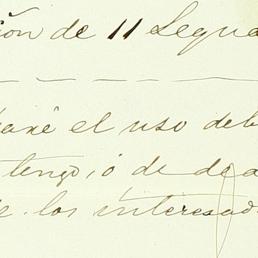 ión de 11 Legua
haré el uso deb
tengo, ó de de a
los interesad